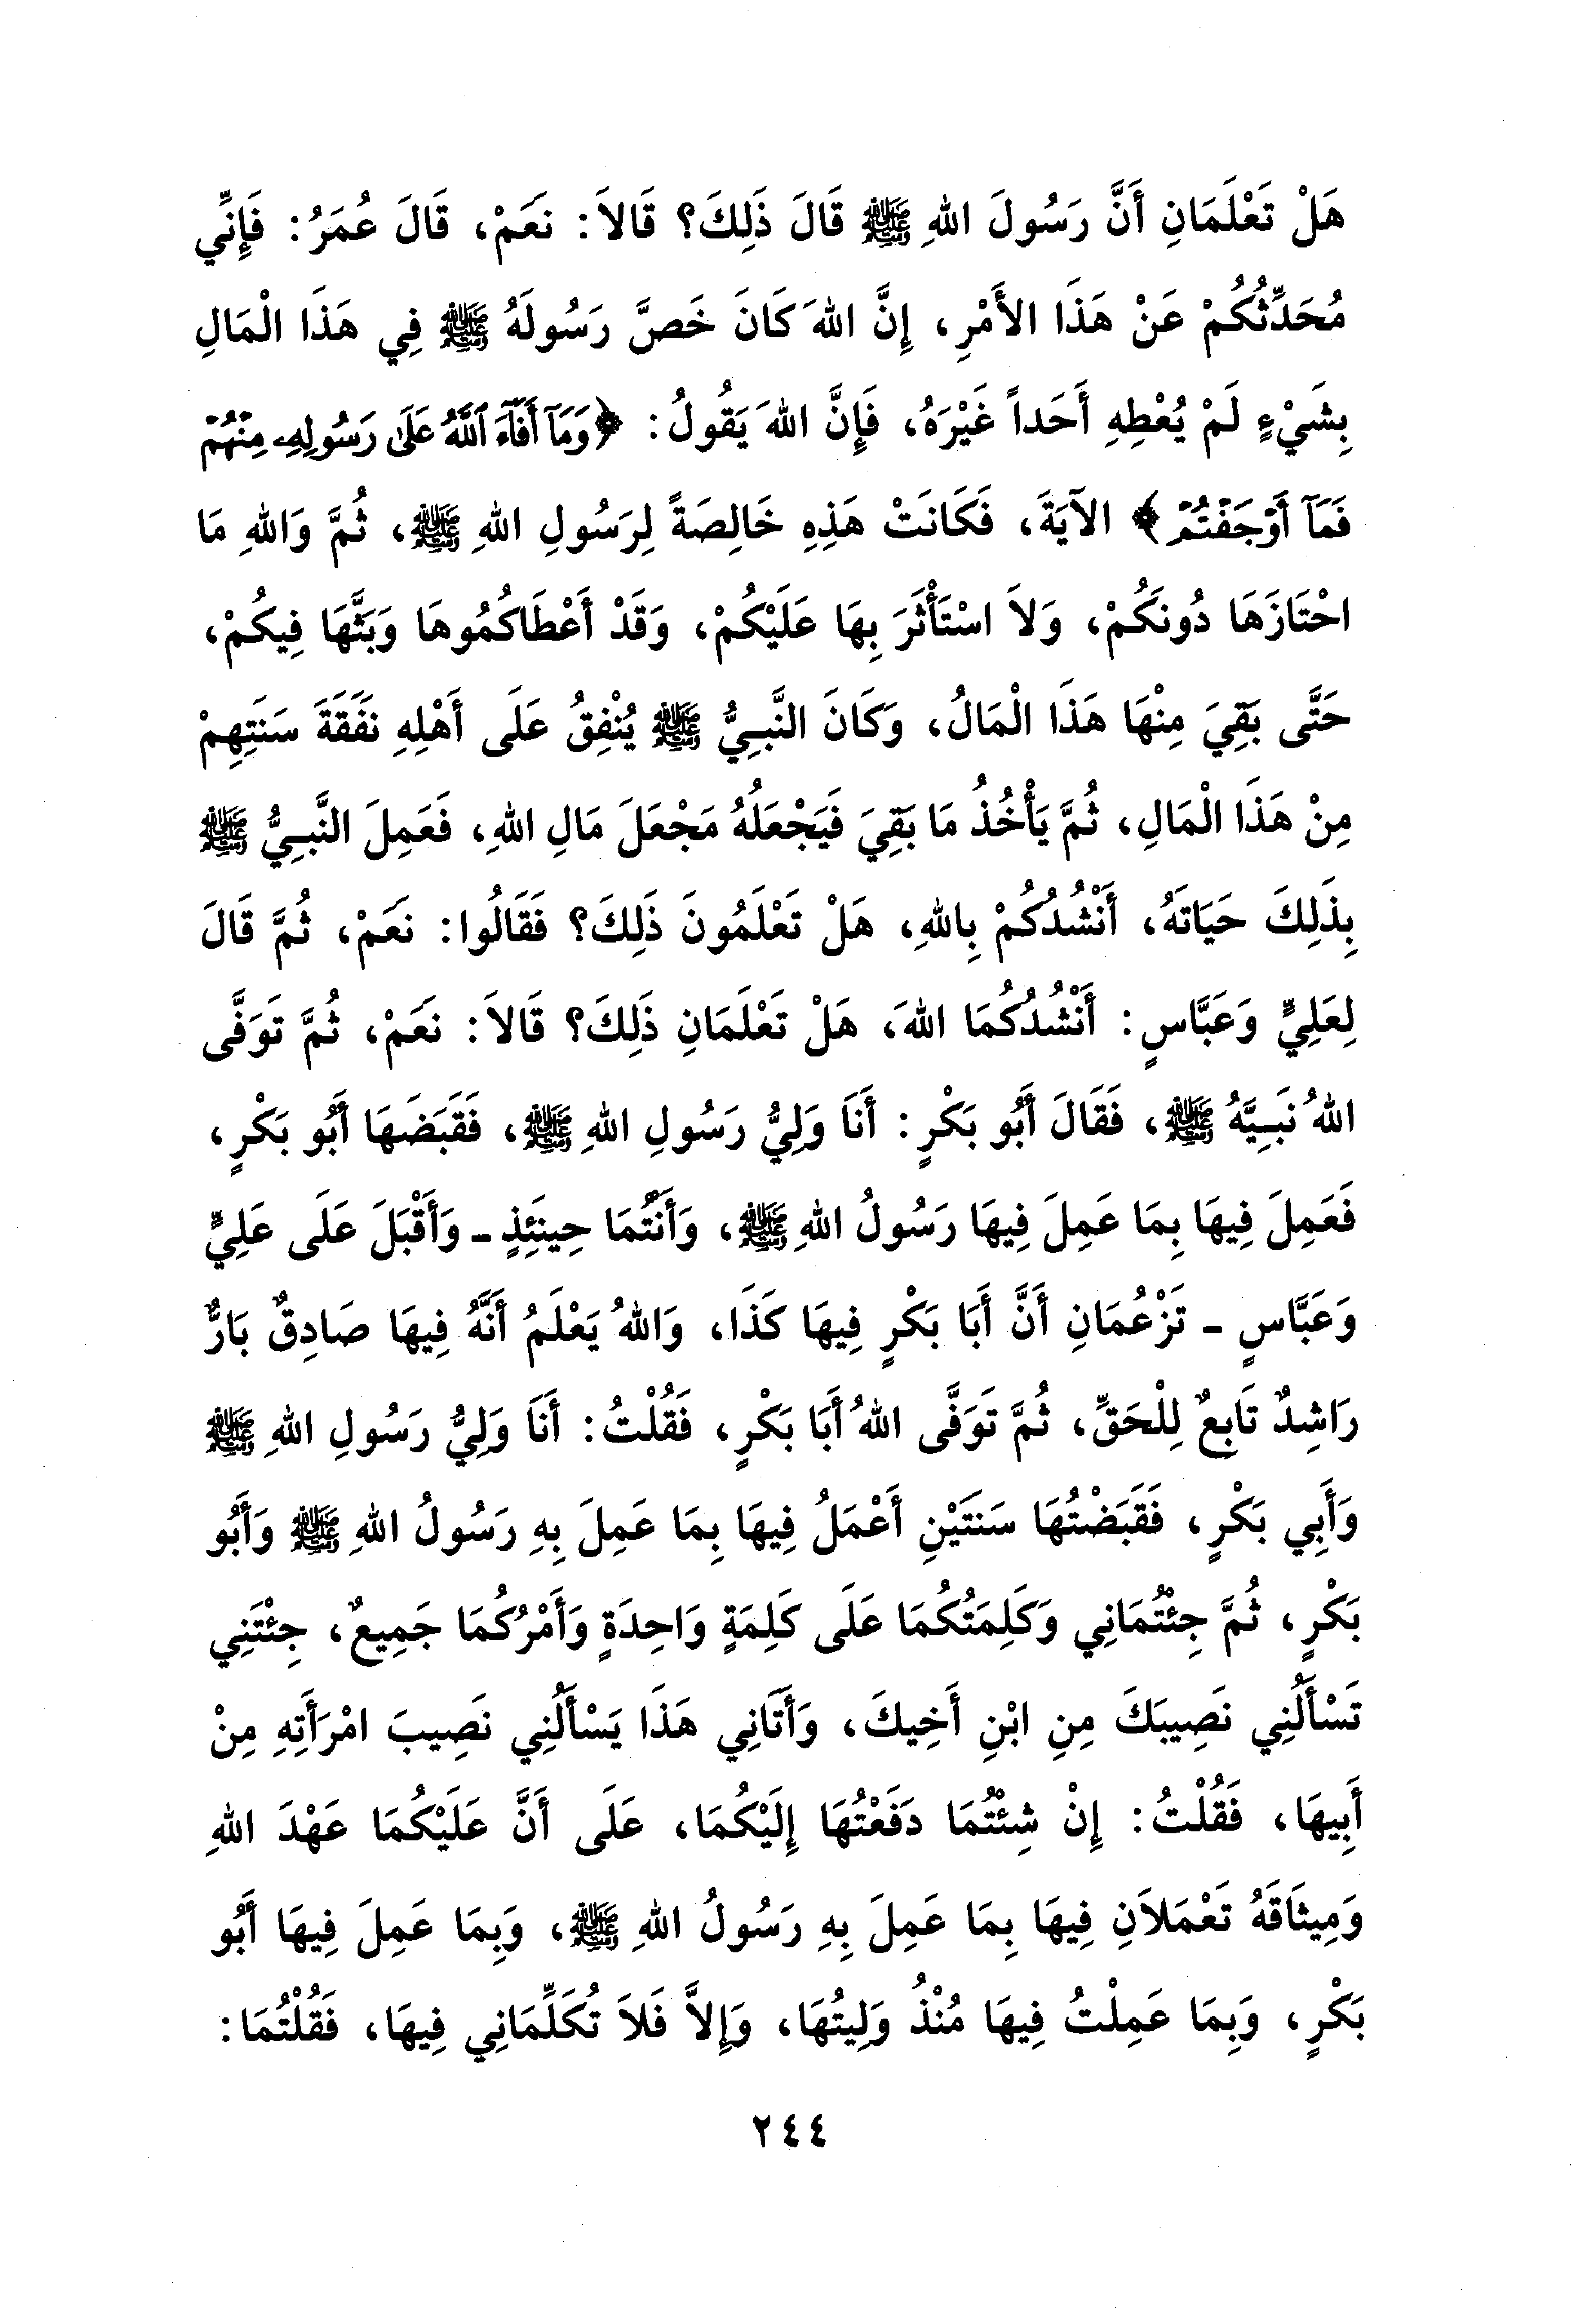 هَلْ تَعْلَمَانِ أَنَّ رَسُولَ اللهِ ﷺ قَالَ ذَلِكَ؟ قَالاَ: نَعَمْ، قَالَ عُمَرُ: فَإِنِّي
مُحَدِّثُكُمْ عَنْ هَذَا الأَمْرِ، إِنَّ اللهَ كَانَ خَصَّ رَسُولَهُ ﷺ فِي هَذَا الْمَالِ
بِشَيْءٍ لَمْ يُعْطِهِ أَحَداً غَيْرَهُ، فَإِنَّ اللهَ يَقُولُ: ﴿وَمَآ أَفَآءَ ٱللَّهُ عَلَىٰ رَسُولِهِۦ مِنْهُمْ
فَمَآ أَوْجَفْتُمْ﴾ الآيَةَ، فَكَانَتْ هَذِهِ خَالِصَةً لِرَسُولِ اللهِ ﷺ، ثُمَّ وَاللهِ مَا
احْتَازَهَا دُونَكُمْ، وَلاَ اسْتَأْثَرَ بِهَا عَلَيْكُمْ، وَقَدْ أَعْطَاكُمُوهَا وَبَثَّهَا فِيكُمْ،
حَتَّى بَقِيَ مِنْهَا هَذَا الْمَالُ، وَكَانَ النَّبِيُّ ﷺ يُنْفِقُ عَلَى أَهْلِهِ نَفَقَةَ سَنَتِهِمْ
مِنْ هَذَا الْمَالِ، ثُمَّ يَأْخُذُ مَا بَقِيَ فَيَجْعَلُهُ مَجْعَلَ مَالِ اللهِ، فَعَمِلَ النَّبِيُّ ﷺ
بِذَلِكَ حَيَاتَهُ، أَنْشُدُكُمْ بِاللهِ، هَلْ تَعْلَمُونَ ذَلِكَ؟ فَقَالُوا: نَعَمْ، ثُمَّ قَالَ
لِعَلِيٍّ وَعَبَّاسٍ: أَنْشُدُكُمَا اللهَ، هَلْ تَعْلَمَانِ ذَلِكَ؟ قَالاَ: نَعَمْ، ثُمَّ تَوَفَّى
اللهُ نَبِيَّهُ ﷺ، فَقَالَ أَبُو بَكْرٍ: أَنَا وَلِيُّ رَسُولِ اللهِ ﷺ، فَقَبَضَهَا أَبُو بَكْرٍ،
فَعَمِلَ فِيهَا بِمَا عَمِلَ فِيهَا رَسُولُ اللهِ ﷺ، وَأَنْتُمَا حِينَئِذٍ ـ وَأَقْبَلَ عَلَى عَلِيٍّ
وَعَبَّاسٍ ـ تَزْعُمَانِ أَنَّ أَبَا بَكْرٍ فِيهَا كَذَا، وَاللهُ يَعْلَمُ أَنَّهُ فِيهَا صَادِقٌ بَارٌّ
رَاشِدٌ تَابِعٌ لِلْحَقِّ، ثُمَّ تَوَفَّى اللهُ أَبَا بَكْرٍ، فَقُلْتُ: أَنَا وَلِيُّ رَسُولِ اللهِ ﷺ
وَأَبِي بَكْرٍ، فَقَبَضْتُهَا سَنَتَيْنِ أَعْمَلُ فِيهَا بِمَا عَمِلَ بِهِ رَسُولُ اللهِ ﷺ وَأَبُو
بَكْرٍ، ثُمَّ جِئْتُمَانِي وَكَلِمَتُكُمَا عَلَى كَلِمَةٍ وَاحِدَةٍ وَأَمْرُكُمَا جَمِيعٌ، جِئْتَنِي
تَسْأَلُنِي نَصِيبَكَ مِنِ ابْنِ أَخِيكَ، وَأَتَانِي هَذَا يَسْأَلُنِي نَصِيبَ امْرَأَتِهِ مِنْ
أَبِيهَا، فَقُلْتُ: إِنْ شِئْتُمَا دَفَعْتُهَا إِلَيْكُمَا، عَلَى أَنَّ عَلَيْكُمَا عَهْدَ اللهِ
وَمِيثَاقَهُ تَعْمَلاَنِ فِيهَا بِمَا عَمِلَ بِهِ رَسُولُ اللهِ ﷺ، وَبِمَا عَمِلَ فِيهَا أَبُو
بَكْرٍ، وَبِمَا عَمِلْتُ فِيهَا مُنْذُ وَلِيتُهَا، وَإِلاَّ فَلاَ تُكَلِّمَانِي فِيهَا، فَقُلْتُمَا:
٢٤٤